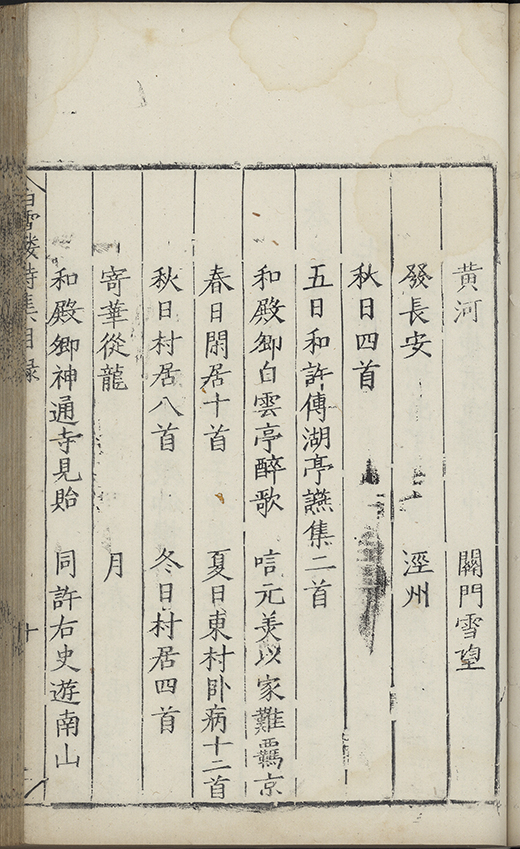 黄河　關門雪望
發長安　涇州
秋日四首
五日和許傅湖亭讌集二首
和殿卿白雲亭醉歌　唁元美以家難羈京
春日閑居十首　夏日東村卧病十二首
秋日村居八首　冬日村居四首
寄華從龍　月
和殿卿神通寺見貽　同許右史遊南山
白雪樓詩集目録　十